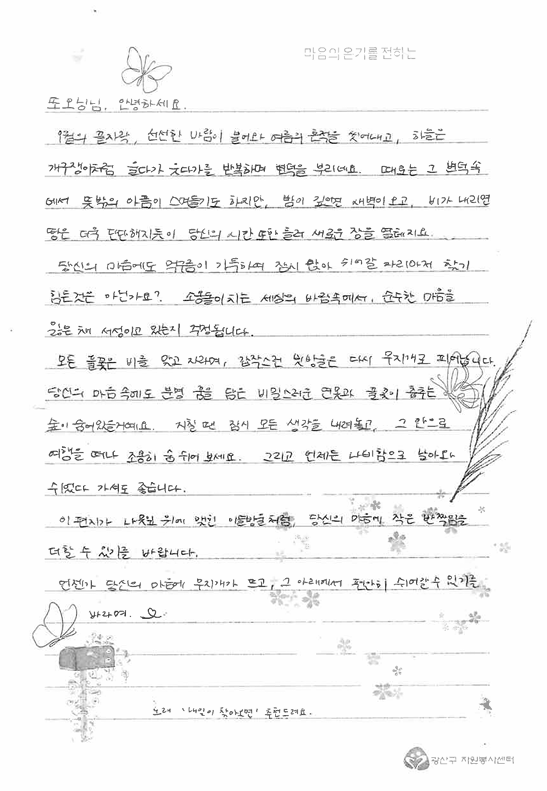 마음의 온기를 전하는
또오님님, 안녕하세요.
9월의 끝자락, 선선한 바람이 불어와 여름의 흔적을 씻어내고, 하늘은
개구쟁이처럼 울다가 웃다가를 반복하며 변덕을 부리네요. 때로는 그 변덕 속
에서 뜻밖의 아픔이 스며들기도 하지만, 밤이 깊으면 새벽이 오고, 비가 내리면
땅은 더욱 단단해지듯이 당신의 시간 또한 흘러 새로운 장을 열테지요.
당신의 마음에도 먹구름이 가득하여 잠시 앉아 쉬어갈 자리마저 찾기
힘든것은 아닌가요? 소용돌이치는 세상의 바람속에서, 순수한 마음을
잃은 채 서성이고 있는지 걱정됩니다.
모든 풀꽃은 비를 맞고 자라며, 갑작스런 빗방울은 다시 무지개로 피어납니다.
당신의 마음 속에도 분명 꿈을 담은 비밀스러운 연못과 풀꽃이 춤추는
숲이 숨어있을거예요. 지칠 땐 잠시 모든 생각을 내려놓고, 그 안으로
여행을 떠나 조용히 숨 쉬어 보세요. 그리고 언제든 나비함으로 날아와
쉬었다 가셔도 좋습니다.
이 편지가 나뭇잎 위에 맺힌 이슬방울처럼, 당신의 마음에 작은 반짝임을
더할 수 있기를 바랍니다.
언젠가 당신의 마음에 무지개가 뜨고, 그 아래에서 편안히 쉬어갈 수 있기를
바라며.
노래 '내일이 찾아오면' 추천드려요.
광산구 자원봉사센터